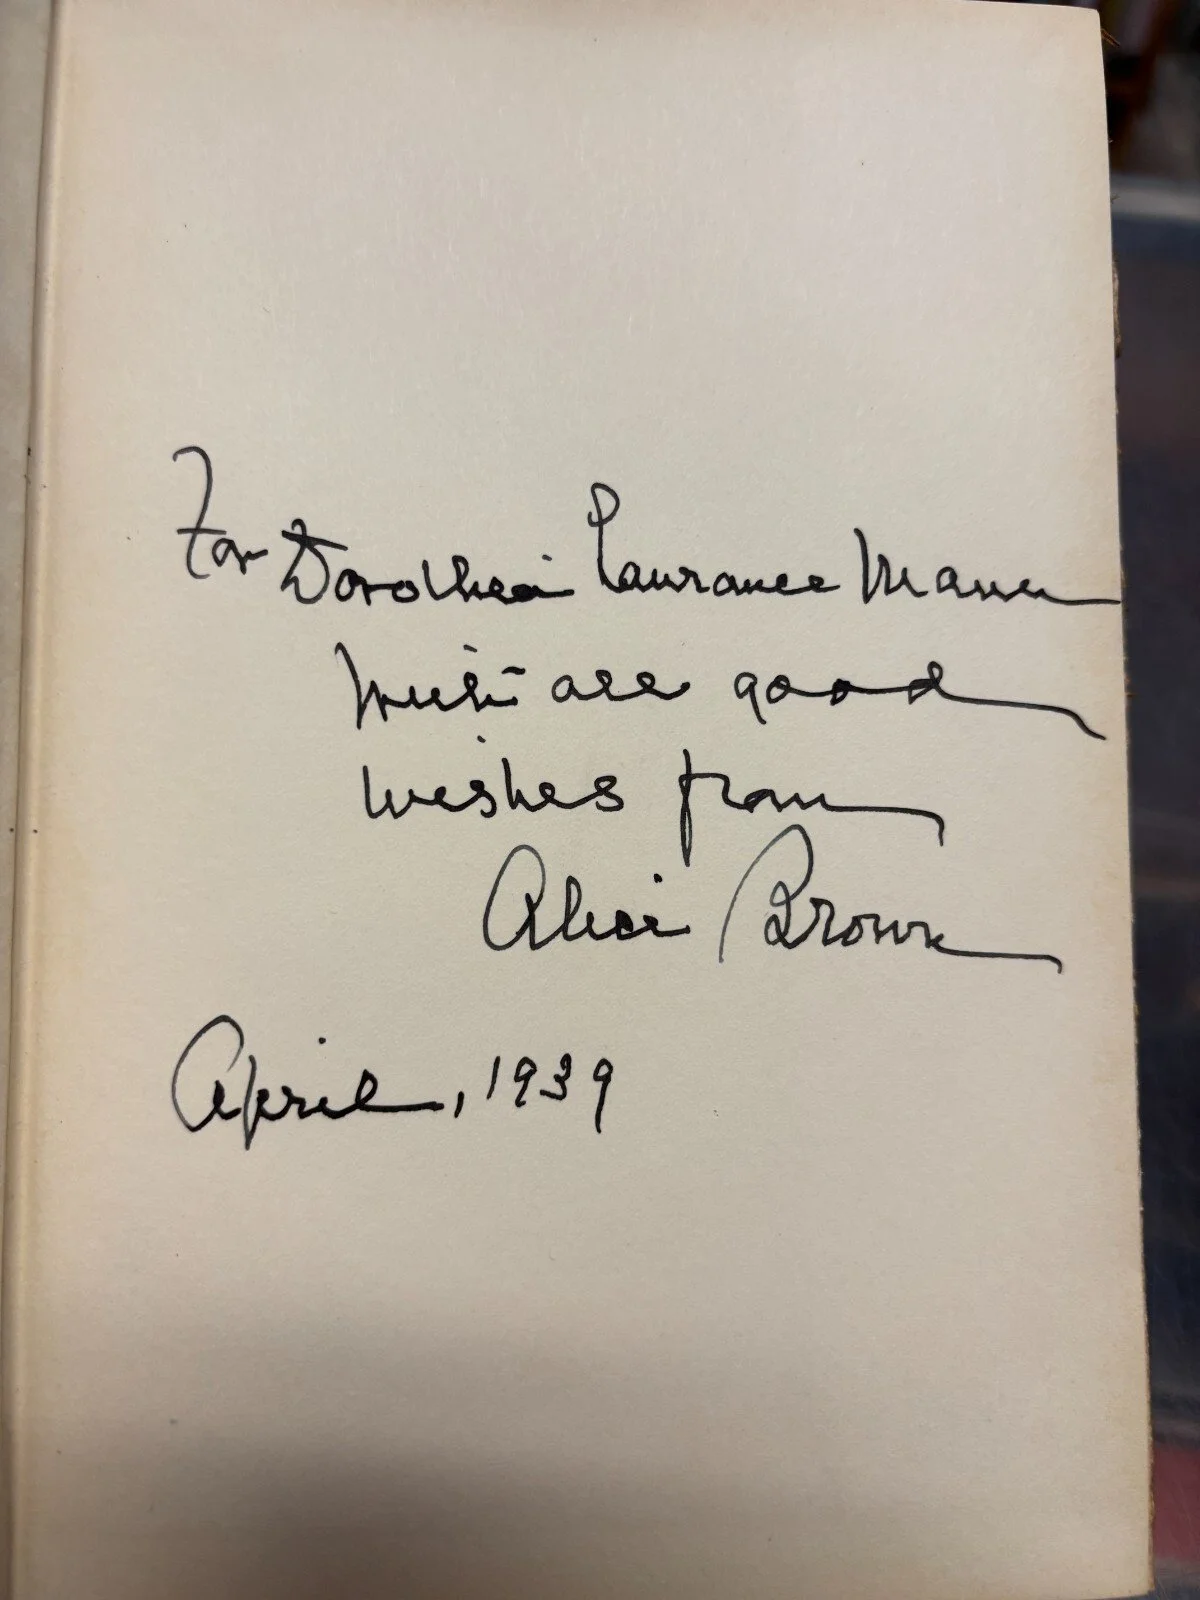 For Dorothea Lawrance Mann
with all good
wishes from
Alice Brown
April, 1939